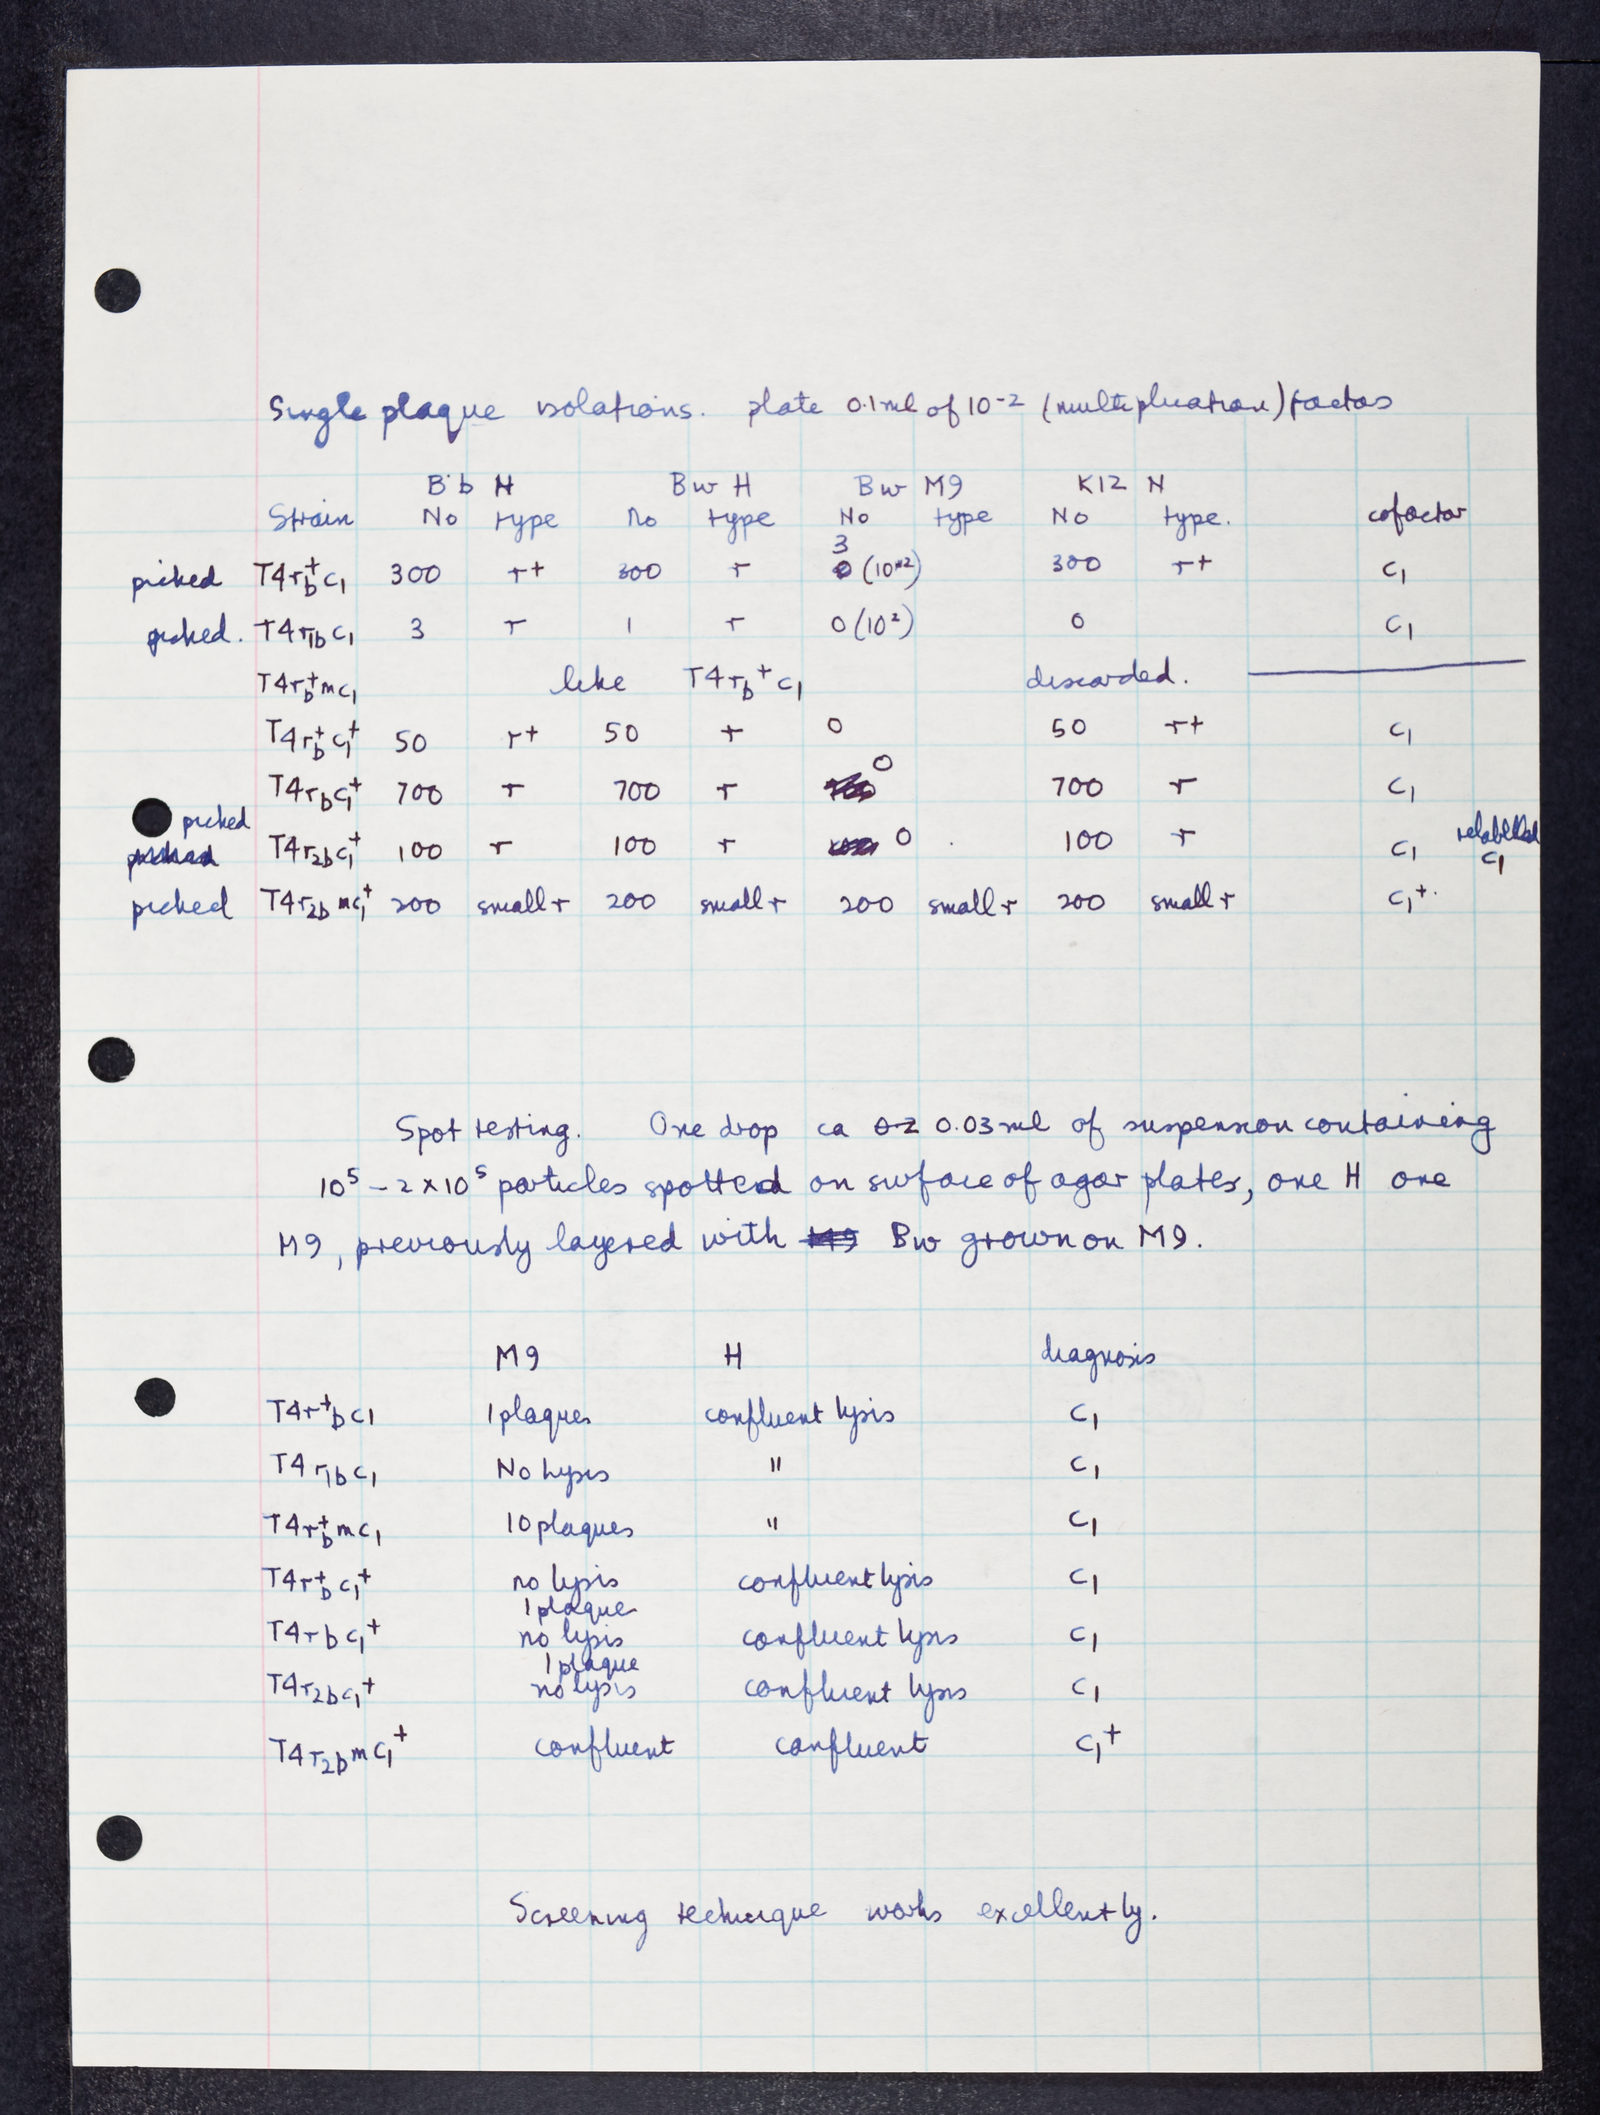 Single plaque isolations. plate 0.1 ml of 10⁻² (multiplication) factors
Bb N Bw H Bw M9 K12 N
Strain No type No type No type No type. cofactor
3
picked T4r⁺bc₁ 300 r+ 300 r 0 (10²) 300 r+ c₁
picked. T4r₁bc₁ 3 r 1 r 0 (10²) 0 c₁
T4r⁺bmc₁ like T4rb⁺c₁ discarded.
T4r⁺bc₁⁺ 50 r+ 50 r 0 50 r+ c₁
T4rbc₁⁺ 700 r 700 r 0 700 r c₁
picked T4r₂bc₁⁺ 100 r 100 r 0 100 r c₁ relabelled c₁
picked T4r₂bmc₁⁺ 200 small r 200 small r 200 small r 200 small r c₁⁺.
Spot testing. One drop ca 0.03 ml of suspension containing
10⁵ – 2×10⁵ particles spotted on surface of agar plates, one H one
M9, previously layered with M9 Bw grown on M9.
M9 H diagnosis
T4r⁺bc₁ 1 plaques confluent lysis c₁
T4r₁bc₁ No lysis " c₁
T4r⁺bmc₁ 10 plaques " c₁
T4r⁺bc₁⁺ no lysis confluent lysis c₁
1 plaque
T4rbc₁⁺ no lysis confluent lysis c₁
1 plaque
T4r₂bc₁⁺ no lysis confluent lysis c₁
T4r₂bmc₁⁺ confluent confluent c₁⁺
Screening technique works excellently.